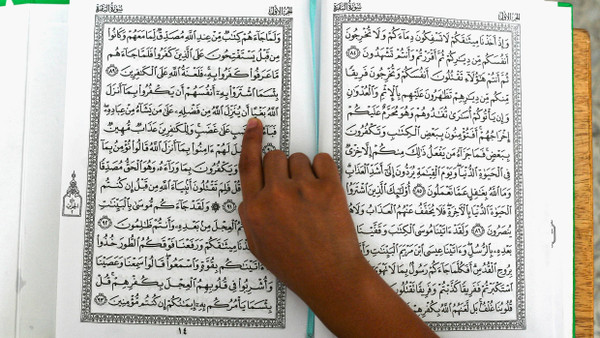 الجزء الأول سورة البقرة
وَإِذْ أَخَذْنَا مِيثَٰقَكُمْ لَا تَسْفِكُونَ دِمَآءَكُمْ وَلَا تُخْرِجُونَ
أَنفُسَكُم مِّن دِيَٰرِكُمْ ثُمَّ أَقْرَرْتُمْ وَأَنتُمْ تَشْهَدُونَ ٨٤
ثُمَّ أَنتُمْ هَٰٓؤُلَآءِ تَقْتُلُونَ أَنفُسَكُمْ وَتُخْرِجُونَ فَرِيقًا
مِّنكُم مِّن دِيَٰرِهِمْ تَظَٰهَرُونَ عَلَيْهِم بِٱلْإِثْمِ وَٱلْعُدْوَٰنِ
وَإِن يَأْتُوكُمْ أُسَٰرَىٰ تُفَٰدُوهُمْ وَهُوَ مُحَرَّمٌ عَلَيْكُمْ
إِخْرَاجُهُمْ أَفَتُؤْمِنُونَ بِبَعْضِ ٱلْكِتَٰبِ وَتَكْفُرُونَ
بِبَعْضٍ فَمَا جَزَآءُ مَن يَفْعَلُ ذَٰلِكَ مِنكُمْ إِلَّا خِزْىٌ
فِى ٱلْحَيَوٰةِ ٱلدُّنْيَا وَيَوْمَ ٱلْقِيَٰمَةِ يُرَدُّونَ إِلَىٰٓ أَشَدِّ ٱلْعَذَابِ
وَمَا ٱللَّهُ بِغَٰفِلٍ عَمَّا تَعْمَلُونَ ٨٥ أُو۟لَٰٓئِكَ ٱلَّذِينَ ٱشْتَرَوُا۟
ٱلْحَيَوٰةَ ٱلدُّنْيَا بِٱلْءَاخِرَةِ فَلَا يُخَفَّفُ عَنْهُمُ ٱلْعَذَابُ وَلَا هُمْ
يُنصَرُونَ ٨٦ وَلَقَدْ ءَاتَيْنَا مُوسَى ٱلْكِتَٰبَ وَقَفَّيْنَا
بَعْدِهِۦ بِٱلرُّسُلِ وَءَاتَيْنَا عِيسَى ٱبْنَ مَرْيَمَ ٱلْبَيِّنَٰتِ
بِرُوحِ ٱلْقُدُسِ أَفَكُلَّمَا جَآءَكُمْ رَسُولٌۢ بِمَا لَا
ٱسْتَكْبَرْتُمْ فَفَرِيقًا كَذَّبْتُمْ وَفَرِيقًا تَقْتُلُونَ
قُلُوبُنَا غُلْفٌۢ بَل لَّعَنَهُمُ ٱللَّهُ بِكُفْرِهِمْ
الجزء الأول سورة البقرة
وَلَمَّا جَآءَهُمْ كِتَٰبٌ مِّنْ عِندِ ٱللَّهِ مُصَدِّقٌ لِّمَا مَعَهُمْ وَكَانُوا۟
مِن قَبْلُ يَسْتَفْتِحُونَ عَلَى ٱلَّذِينَ كَفَرُوا۟ فَلَمَّا جَآءَهُم
مَّا عَرَفُوا۟ كَفَرُوا۟ بِهِۦ فَلَعْنَةُ ٱللَّهِ عَلَى ٱلْكَٰفِرِينَ ٨٩
بِئْسَمَا ٱشْتَرَوْا۟ بِهِۦٓ أَنفُسَهُمْ أَن يَكْفُرُوا۟ بِمَآ أَنزَلَ
ٱللَّهُ بَغْيًا أَن يُنَزِّلَ ٱللَّهُ مِن فَضْلِهِۦ عَلَىٰ مَن يَشَآءُ مِنْ عِبَادِهِۦ
عَلَىٰ غَضَبٍ وَلِلْكَٰفِرِينَ عَذَابٌ مُّهِينٌ
لَهُمْ ءَامِنُوا۟ بِمَآ أَنزَلَ ٱللَّهُ قَالُوا۟ نُؤْمِنُ بِمَآ
وَيَكْفُرُونَ بِمَا وَرَآءَهُۥ وَهُوَ ٱلْحَقُّ مُصَدِّقًا
قُلْ فَلِمَ تَقْتُلُونَ أَنۢبِيَآءَ ٱللَّهِ مِن قَبْلُ إِن كُنتُم
٩١ وَلَقَدْ جَآءَكُم مُّوسَىٰ بِٱلْبَيِّنَٰتِ
ٱلْعِجْلَ مِنۢ بَعْدِهِۦ وَأَنتُمْ ظَٰلِمُونَ ٩٢
مِيثَٰقَكُمْ وَرَفَعْنَا فَوْقَكُمُ ٱلطُّورَ خُذُوا۟
ءَاتَيْنَٰكُم بِقُوَّةٍ وَٱسْمَعُوا۟ قَالُوا۟ سَمِعْنَا وَعَصَيْنَا
وَأُشْرِبُوا۟ فِى قُلُوبِهِمُ ٱلْعِجْلَ بِكُفْرِهِمْ قُلْ
بِئْسَمَا يَأْمُرُكُم بِهِۦٓ إِيمَٰنُكُمْ إِن كُنتُم مُّؤْمِنِينَ ٩٣
١٤